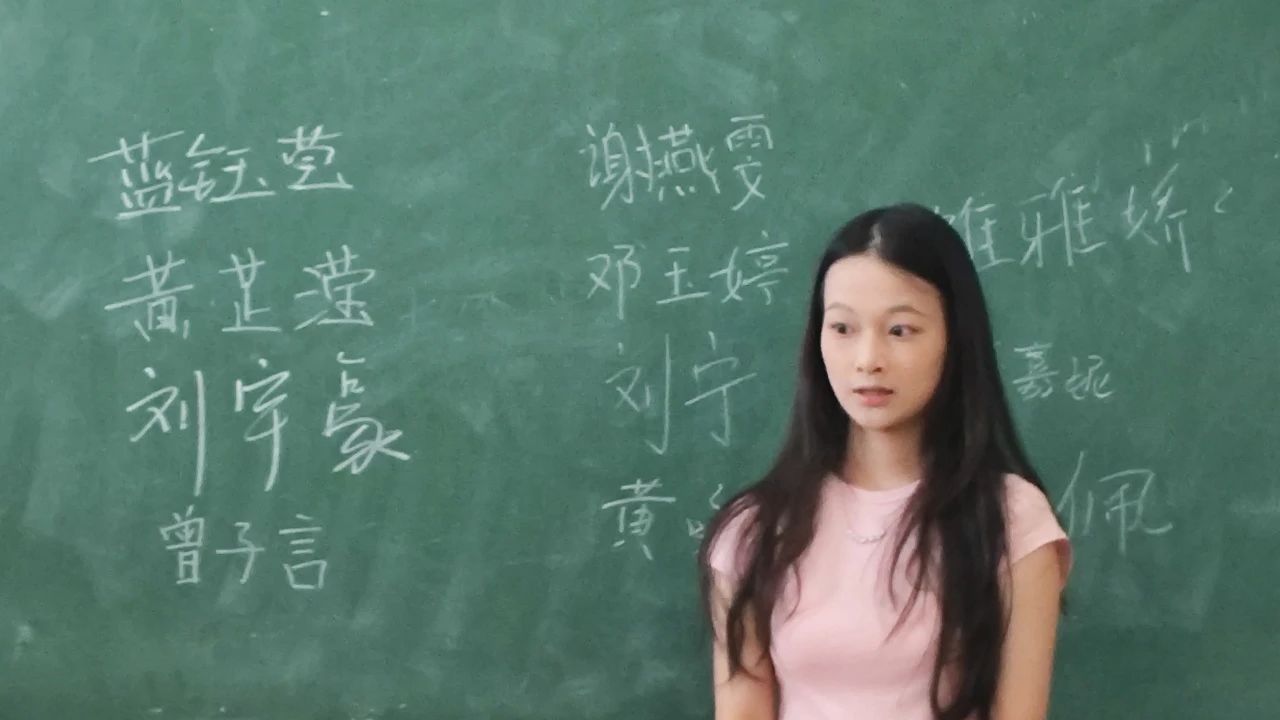 蓝钰莹
黄芷滢
刘宇
曾子言
谢燕雯
邓玉婷
刘宁
黄
雅娇
嘉妮
佩